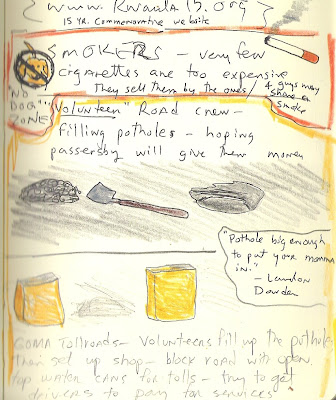 www. Kwaula 15.org
15 YR. Commemorative website
SMOKERS – very few
cigarettes are too expensive
They sell them by the ones/
4 guys may
share a
smoke
NO
DOG
ZONE
"Volunteer" Road crew –
filling potholes – hoping
passersby will give them money
"Pothole big enough
to put your momma
in."
– Landon
Dowden
GOMA Tollroads – Volunteers fill up the potholes,
then set up shop – block road with open
top water cans for tolls – try to get
drivers to pay for services